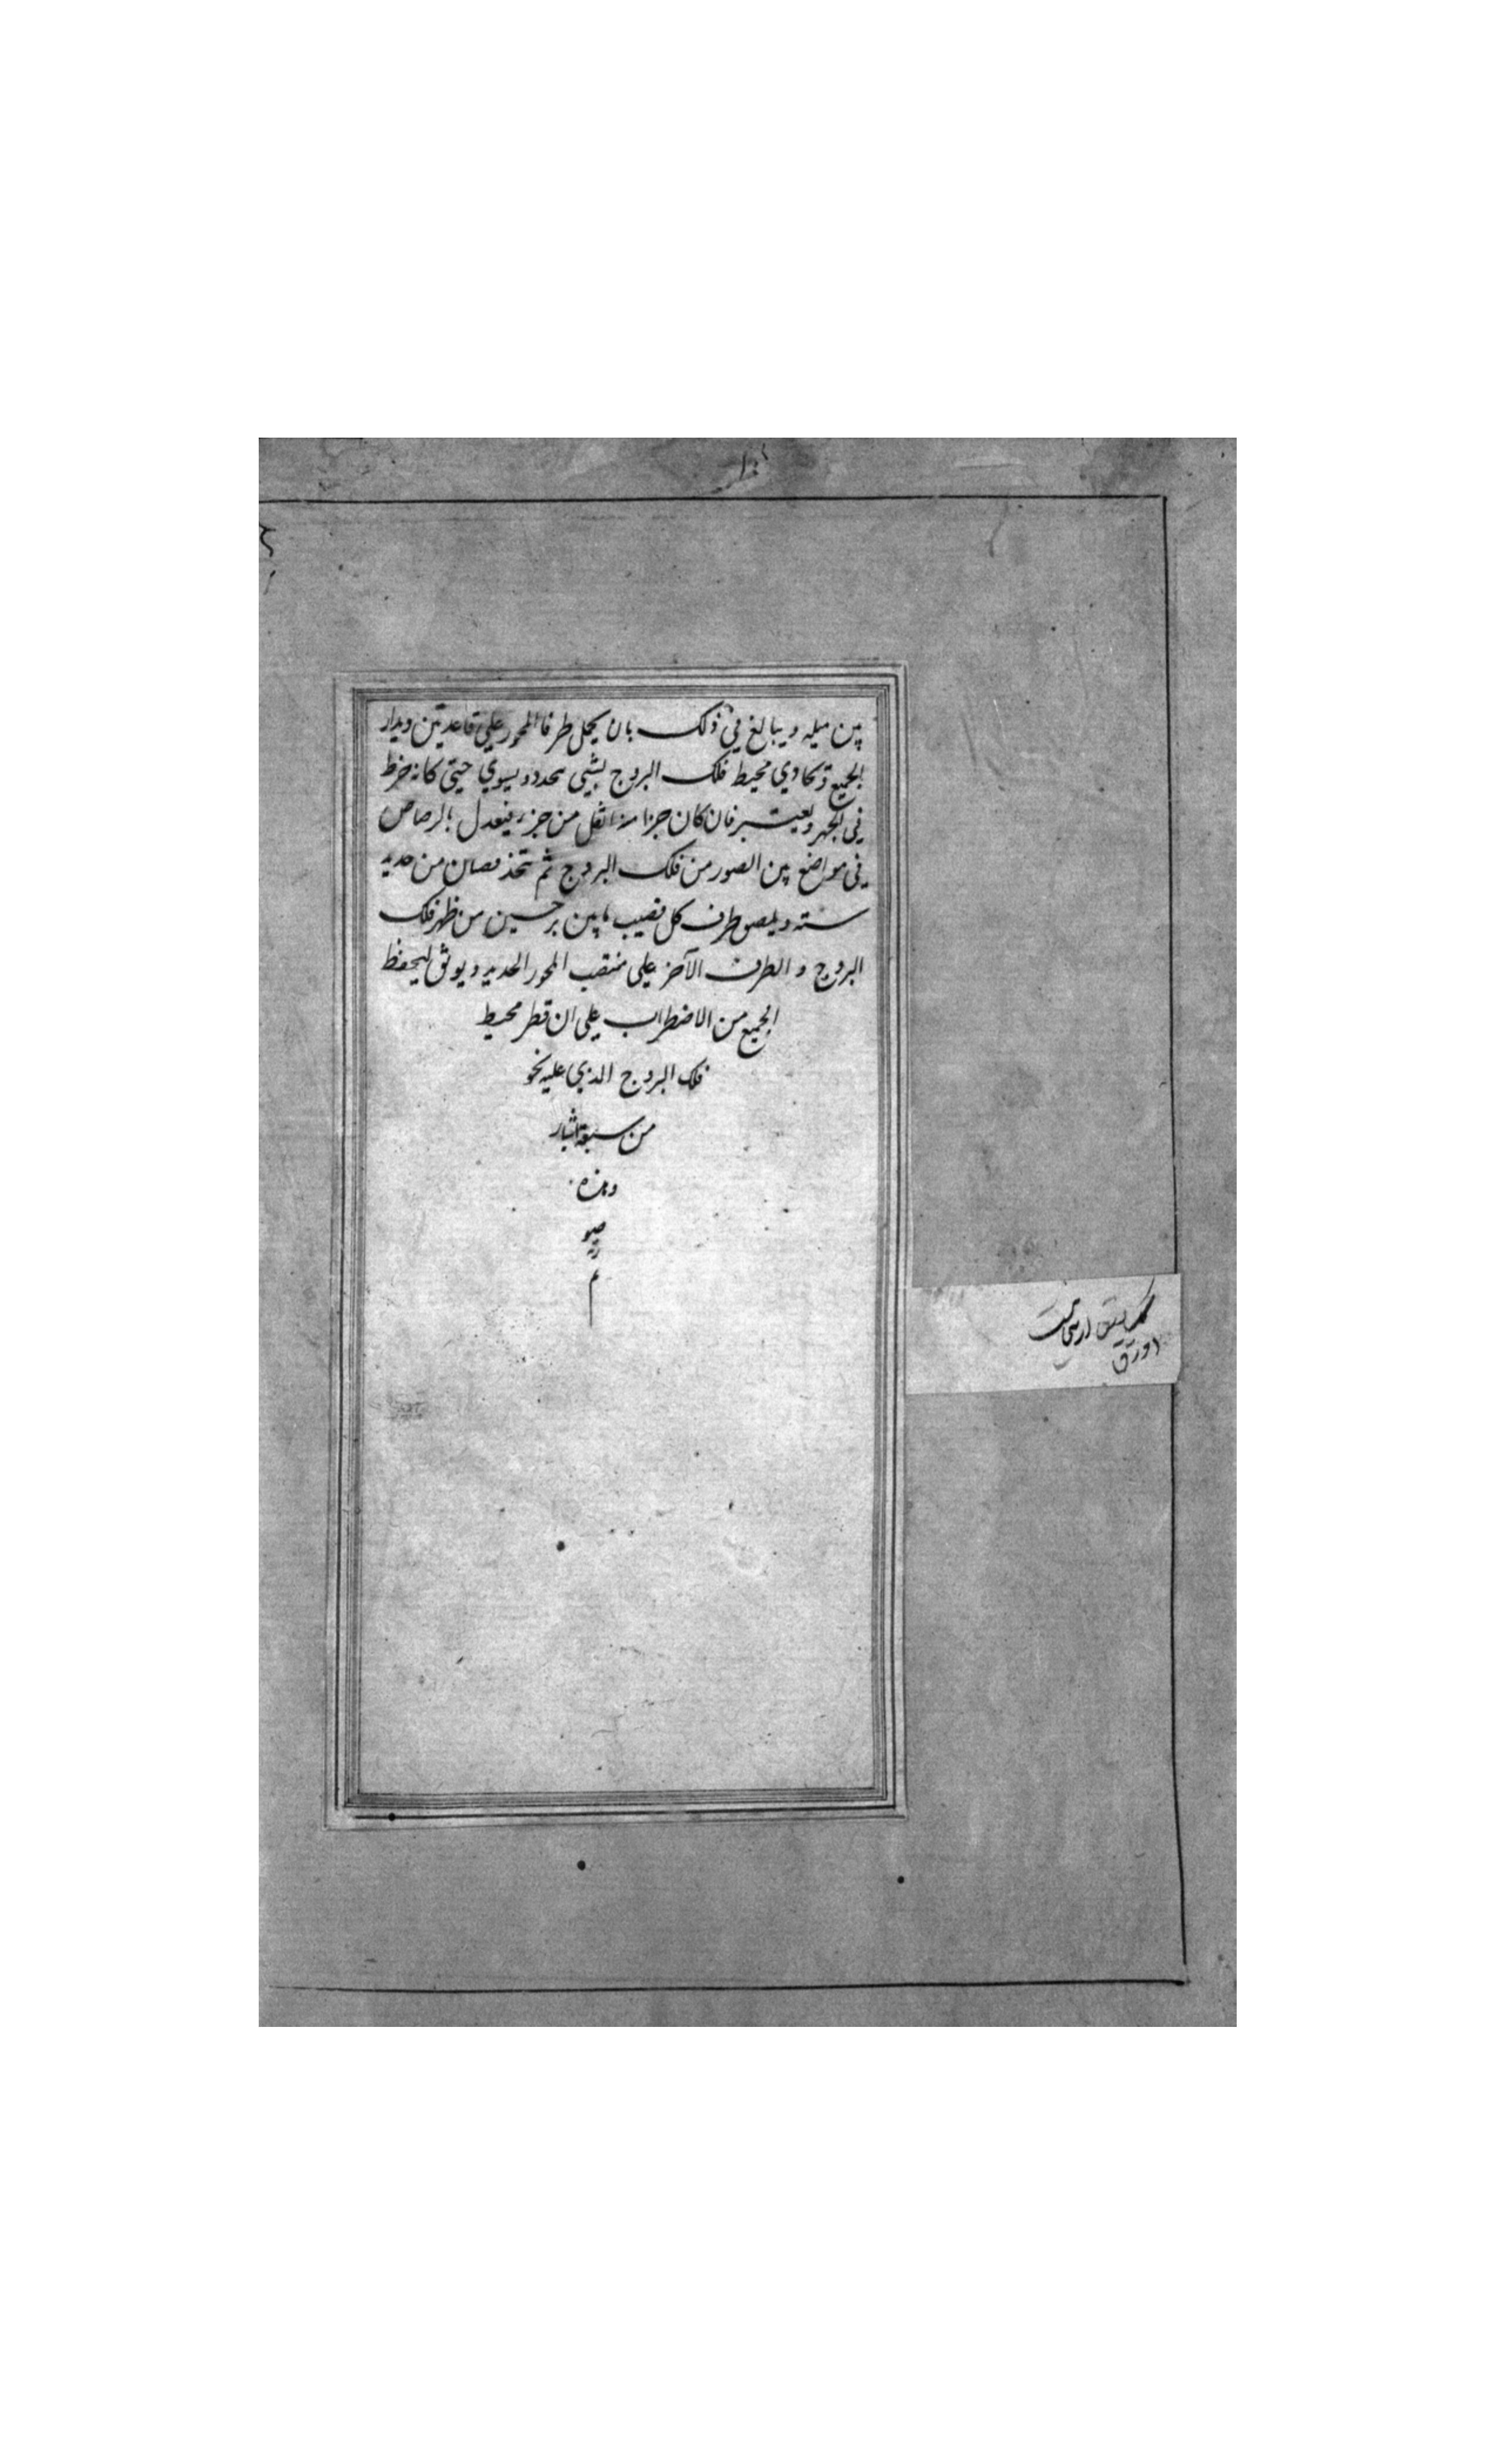 بين ميله ويبالغ في ذلك بان يجعل طرفا المحور علي قاعدتين ويدار
الجميع وتحاذي محيط فلك البروج بشيي محدد ويسوي حيتي كانه خرط
في الجهر ويعتبر فان كان جزا منه اثقل من جزء فيعدل بالرصاص
في مواضع بين الصور من فلك البروج ثم تتخذ قصبان من حديد
سته ويلصق طرف كل قصيب ما بين برجين من ظهر فلك
البروج والطرف الآخر علي منتصب المحور الحديد ويوثق ليحفظ
الجميع من الاضطراب علي ان قطر محيط
فلك البروج الذي عليه نحو
من سبعة اشبار
وهذه
صو
رته
م
اورق